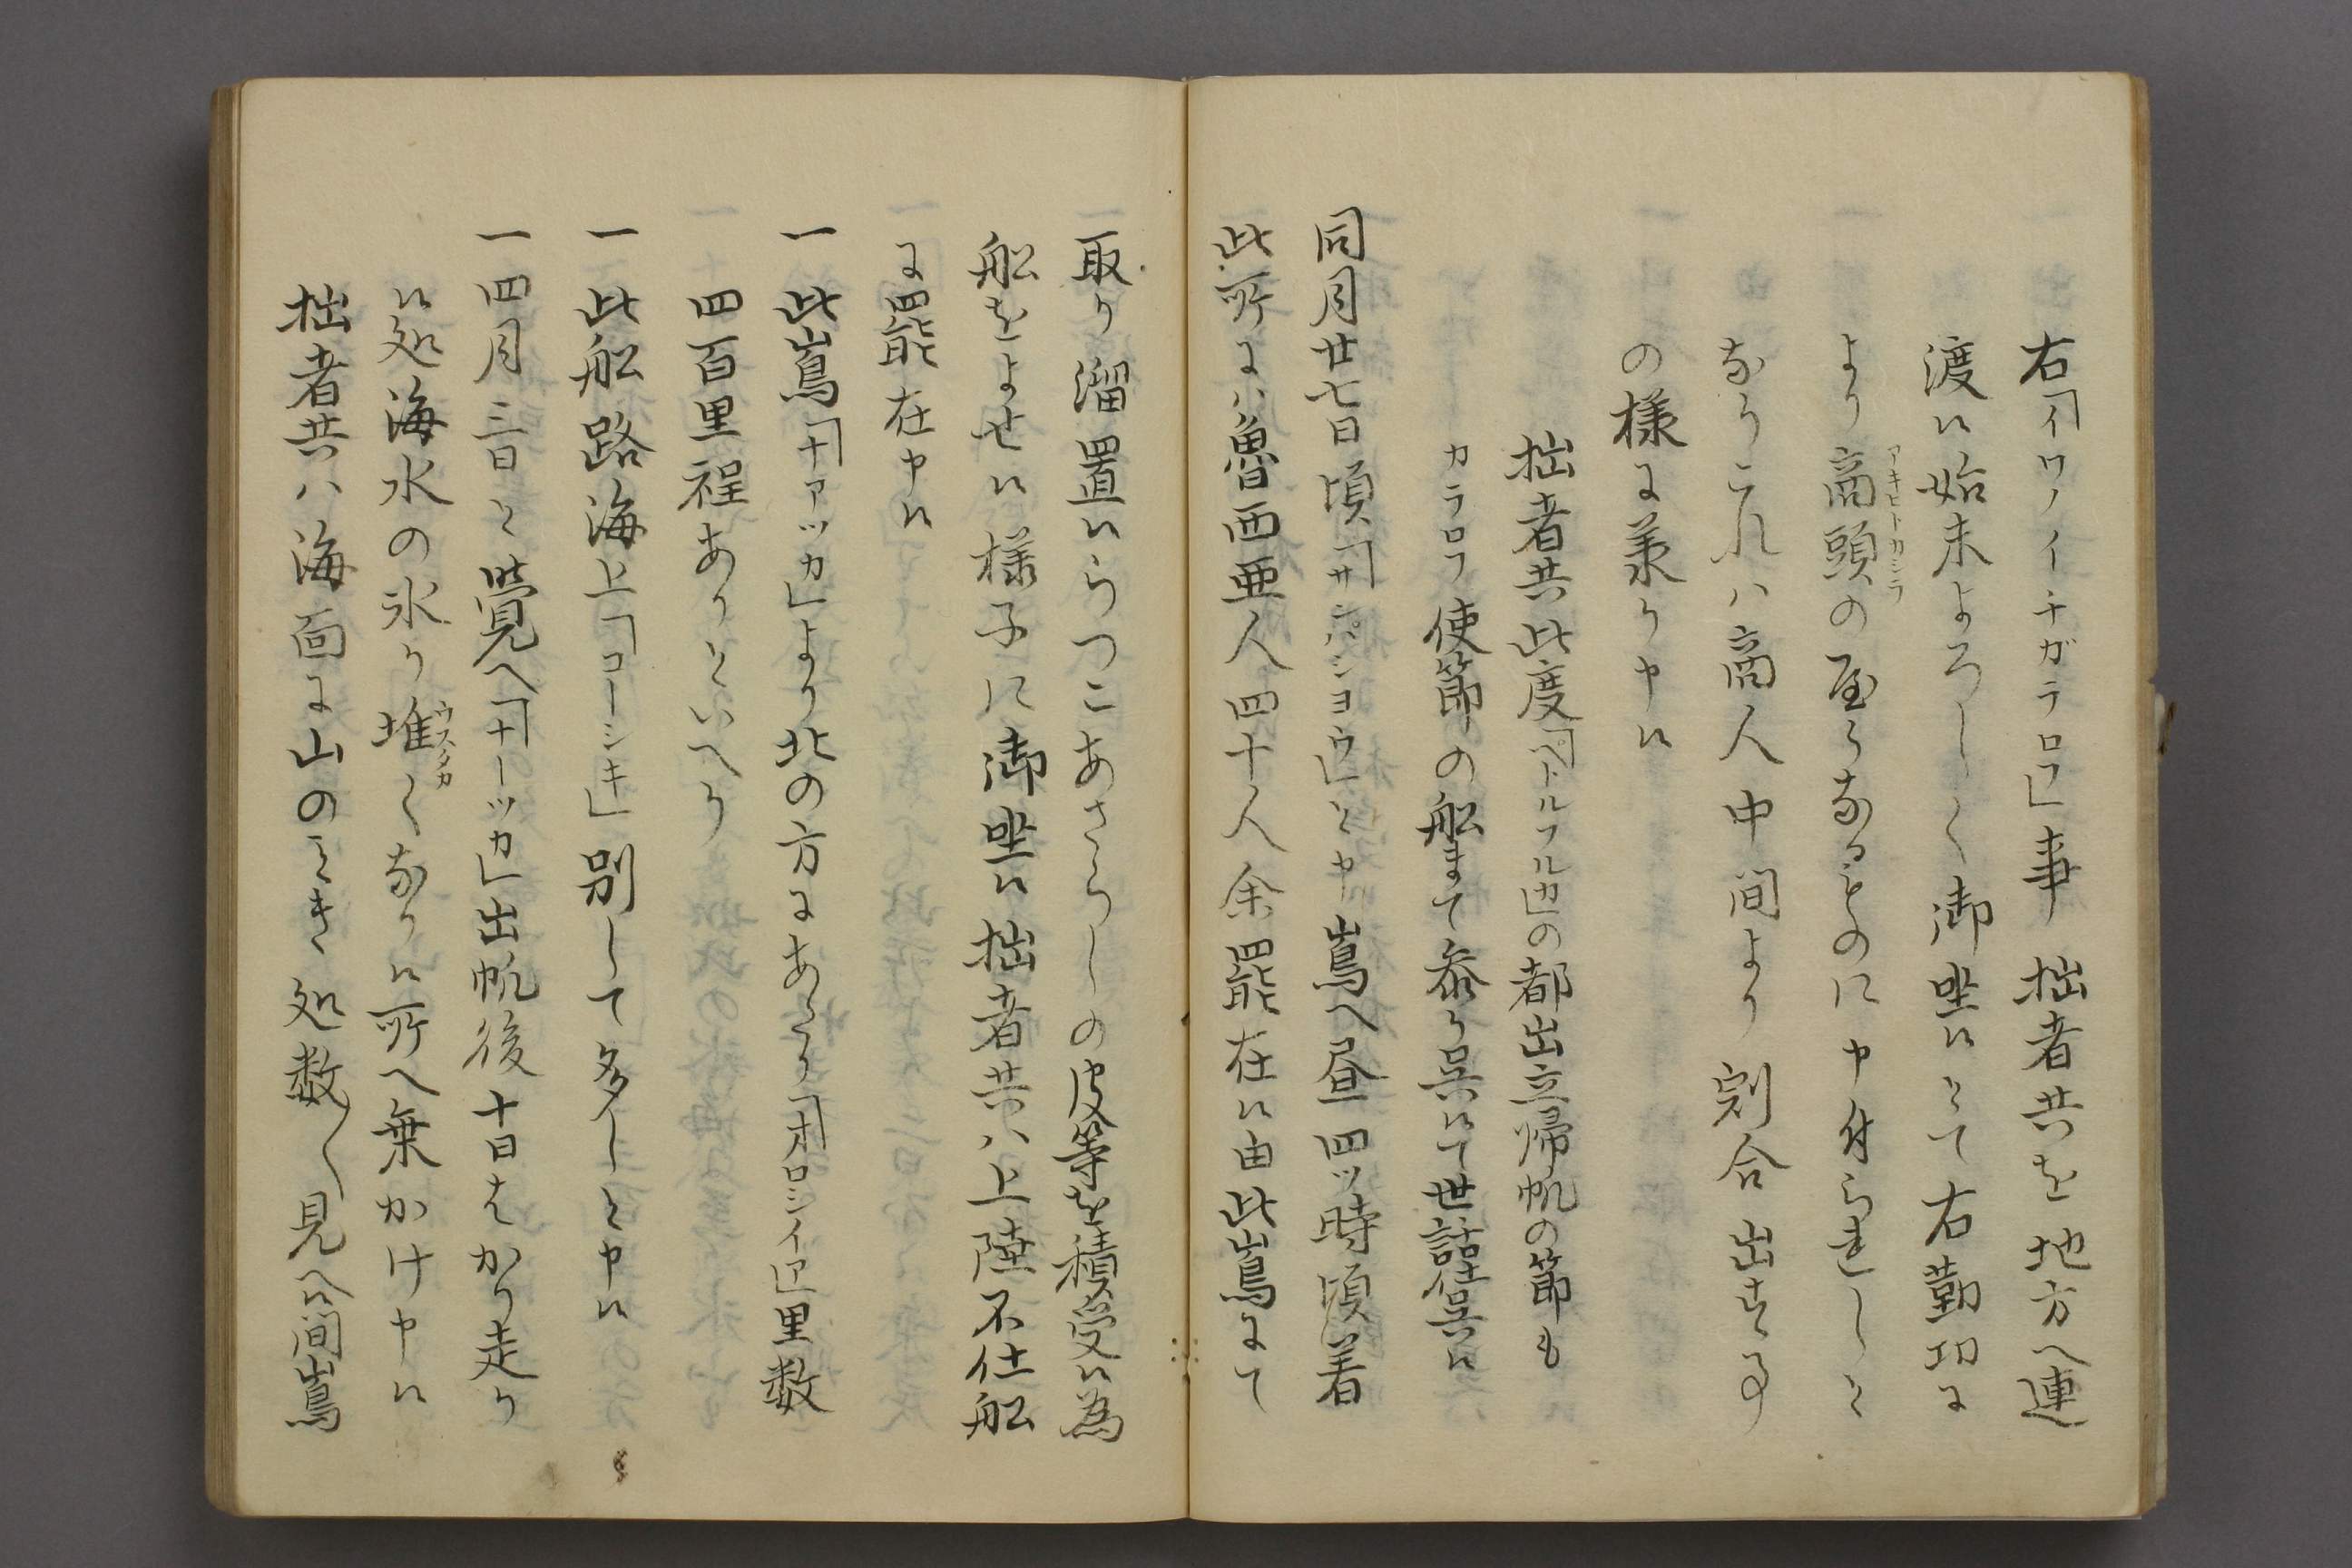 右「イワノイチガラロフ」事 拙者共を地方へ連
渡候始末よろしく御坐候とて右勤功に
より商頭の屋くなるものに申付られしと
アキヒトカシラ
なりこれハ商人中間より割合出する事
の様に承り申候
拙者共此度「ペトルフルカ」の都出立帰帆の節も
カラロフ使節の船まて参り呉候て世話仕呉候
同月廿七日頃「サンパショウ」と申嶌へ昼四ツ時頃着
此所にハ魯西亜人四十人余罷在候由此嶌にて
取り溜置候らつこあさらしの皮等を積受候為
船をよせ候様子に御坐候拙者共ハ上陸不仕船
に罷在申候
一此嶌「ナアツカ」より北の方にあたり「ヲロシイア」里数
四百里程ありといへり
一此船路海上「コーシキ」別して多しと申候
一四月三日と覚へ「ナーツカ」出帆後十日はかり走り
候処海水の氷り堆くなり候所へ乗かけ申候
ウズタカ
拙者共ハ海面に山のことき処数〱見へ候間嶌